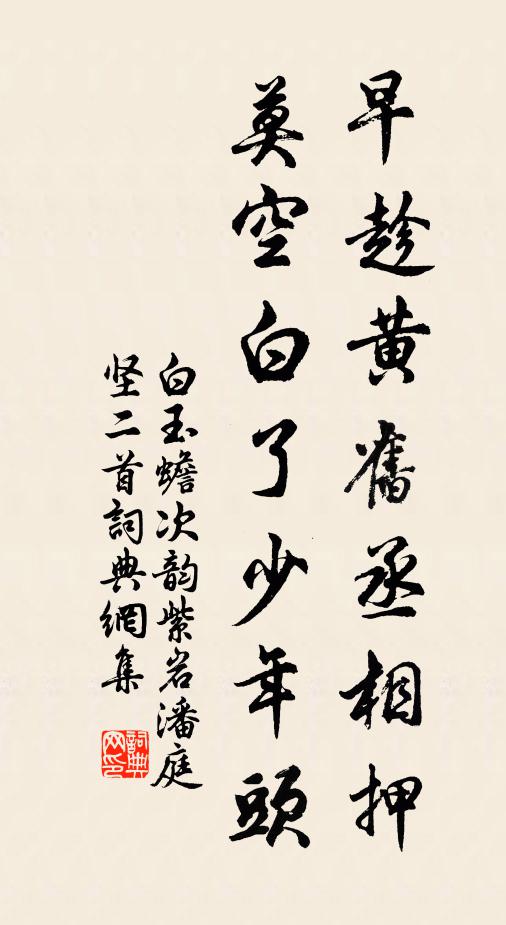 早趁黄舊丞相押
莫空白了少年頭
白玉蟾次韵紫岩潘庭
坚二首詞典網集
詞典
网印